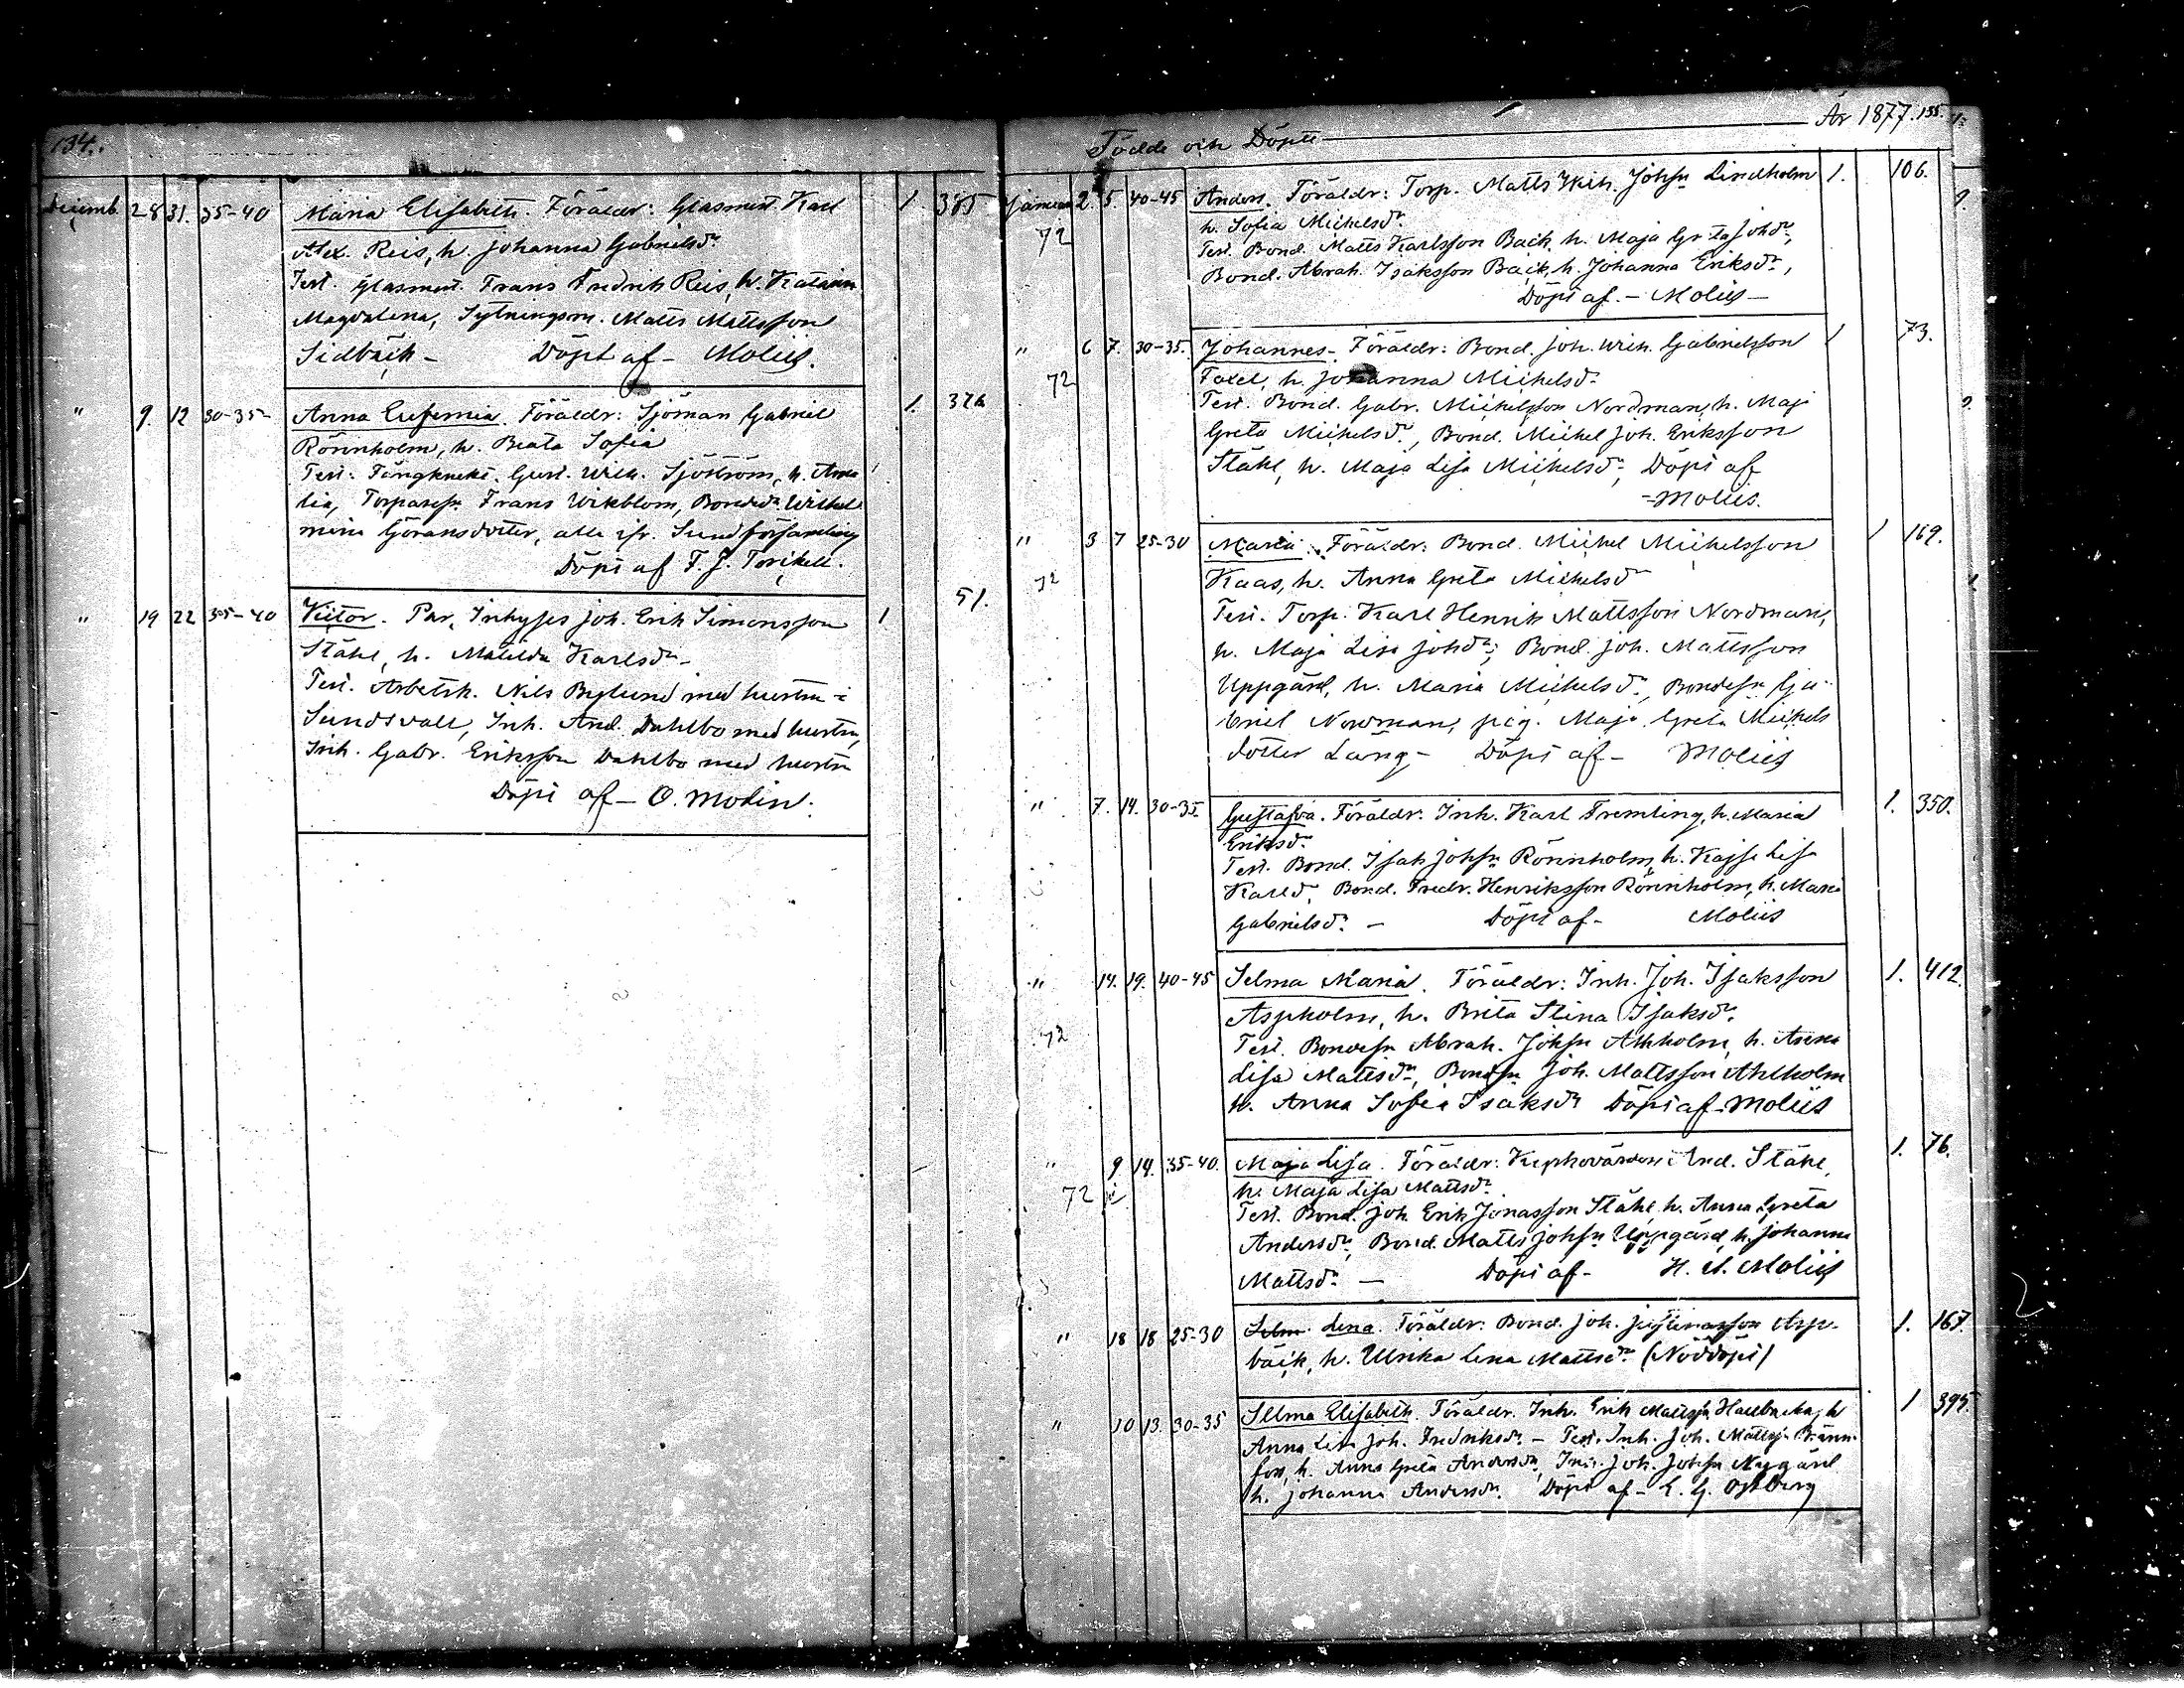 134.
Decemb. 28 31. 35-40 Maria Elisabeth. Föräldr: Glasmest. Karl 1. 385
Alex. Reis, h. Johanna Gabrielsdr
Test. Glasmest. Frans Fredrik Reis, h. Katarin
Magdalena, Sytningsm. Matts Mattsson
Sidbäck - Döpt af - Moliis.
" 9. 12 30-35- Anna Eufemia. Föräldr: Sjöman Gabriel 1. 326
Rönnholm, h. Beata Sofia
Test: Gust. Wilh. Sjöström, h. Ama
lia, Torparesn Frans Wikblom, Bondedr Wilhel
mina Göransdotter, alla ifr. Sund församling
Döpt af F. J. Torckell.
" 19 22 35-40 Victor. Par, Inhyses Joh. Erik Simonsson 1 51.
Ståhl, h. Matilda Karlsdr -
Test. Arbetsk. Nils Bylund med hustru i
Sundsvall, Inh. And. Dahlbo med hustru,
Inh. Gabr. Eriksson Dahlbo med hustru
Döpt af - O. Modin.
Födde och Döpte År 1877. 135.
Januari 2. 5. 40-45 Anders. Föräldr: Torp. Matts Wilh. Johsn Lindholm 1. 106.
72 h. Sofia Michelsdr
Test. Bond. Matts Karlsson Back, h. Maja Greta Johdr,
Bond. Abrah. Isaksson Back, h. Johanna Eriksdr,
Döpt af. - Moliis -
" 6 7. 30-35. Johannes - Föräldr: Bond. Joh. Wilh. Gabrielsson 1 73.
72 h. Johanna Michelsdr
Test. Bond. Gabr. Michelsson Nordman, h. Maj
Greta Michelsdr, Bond. Michel Joh. Eriksson
Ståhl, h. Maja Lisa Michelsdr, Döpt af
- Moliis.
" 3 7 25-30 Maria. Föräldr: Bond. Michel Michelsson 1 169.
72 Kaas, h. Anna Greta Michelsdr
Test. Torp. Karl Henrik Mattsson Nordman,
h. Maja Lisa Johdr; Bond. Joh. Mattsson
Uppgård, h. Maria Michelsdr, Bondesn Ga-
briel Nordman, pig. Maja Greta Michels
dotter Lång - Döpt af - Moliis
" 7. 14. 30-35. Gustafva. Föräldr: Inh. Karl Fremling, h. Maria 1. 350.
Eriksdr
Test. Bond. Isak Johsn Rönnholm, h. Kajsa Lisa
Karlsd. Bond. Fredr. Henriksson Rönnholm, h. Maria
Gabrielsdr. - Döpt af - Moliis
" 14. 19. 40-45 Selma Maria. Föräldr: Inh. Joh. Isaksson 1. 412.
Aspholm, h. Brita Stina Isaksdr.
72 Test. Bondesn Abrah. Johsn Ahlholm, h. Anna
Lisa Mattsdr, Bondsn Joh. Mattsson Ahlholm
h. Anna Sofia Isaksdr Döpt af - Moliis
" 9 14. 35-40. Maja Lisa. Föräldr: Kyrkovärden And. Ståhl, 1. 76.
72 h. Maja Lisa Mattsdr.
Test. Bond. Joh. Erik Jonasson Ståhl, h. Anna Greta
Andersdr, Bond. Matts Johsn Uppgård, h. Johanna
Mattsdr. - Döpt af - H. A. Moliis
" 18 18 25-30 Selm Lena. Föräldr: Bond. Joh. Asp- 1. 167.
bäck, h. Ulrika Lena Mattsdr. (Nöddöpt)
" 10 13. 30-35 Selma Elisabeth. Föräldr. Inh. Erik Mattssn h 1 395.
Anna Lisa Joh. Fredriksdr - Test. Inh. Joh. Mattssn Bränn-
fors, h. Anna Greta Andersdr, Inh. Joh. Johsn Nygård
h. Johanna Andersdr. Döpt af - E. G. Ostberg